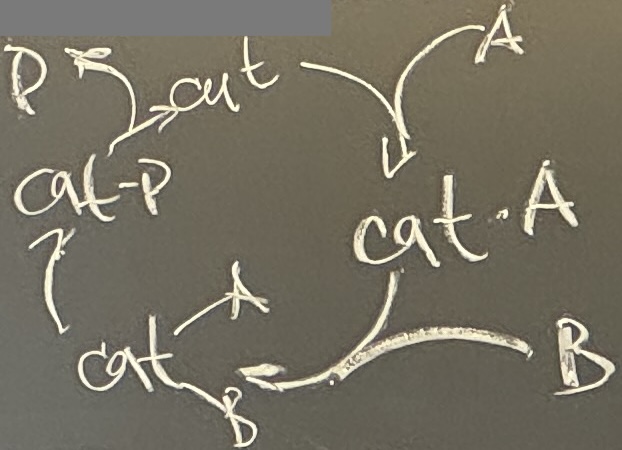 P
cat
A
cat-P
cat·A
cat
A
B
B